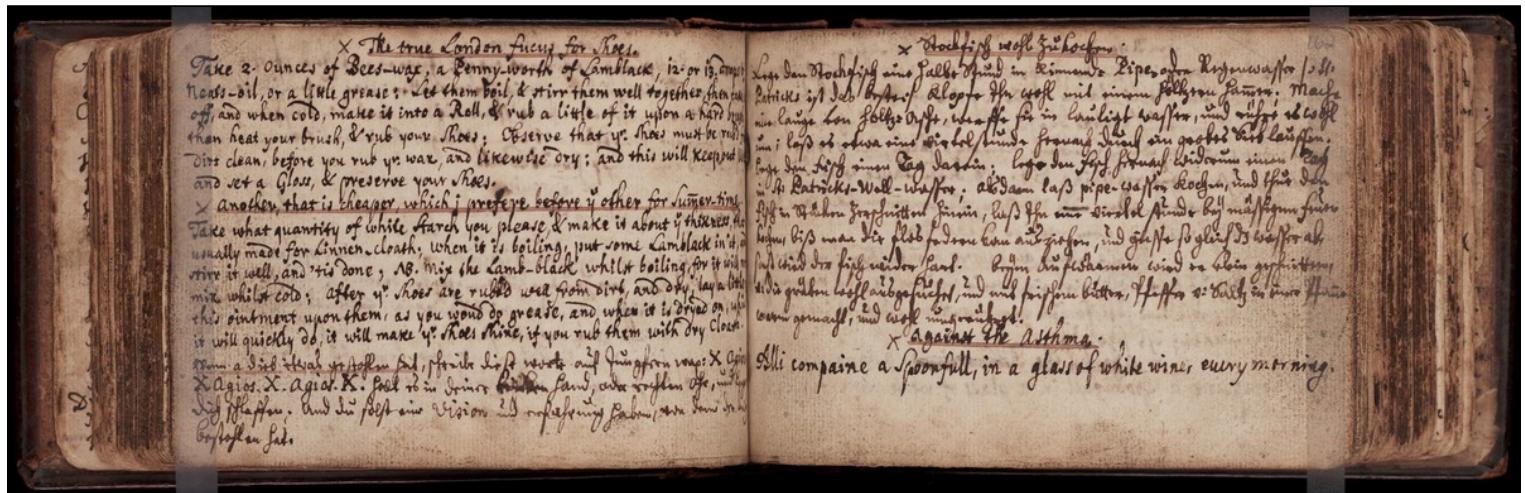 x The true London fucus for Shoes.
Take 2. Ounces of Bees-wax, a Penny-worth of Lamblack, 12. or 13.
Neats-oil, or a little grease: Let them boil, & stirr them well together, then
off, and when cold, make it into a Roll, & rub a little of it upon a hard
then heat your brush, & rub your Shoes: Observe that yr. Shoes must be
Dirt clean, before you rub yr. wax, and likewise dry: and this will keep out
and set a Gloss, & preserve your Shoes.
x Another, that is cheaper, which i prefere before ÿ other for Sum̄er-time
Take what quantity of white starch you please, & make it about ÿ thikness,
usually made for Linnen-cloath, when it is boiling, put some Lamblack in it,
stirr it well, and 'tis done; NB. Mix the Lamb-black whilst boiling, for it will
mix whilst cold: After yr. Shoes are rubb'd well from dirt, and dry, lay a little
this ointment upon them, as you woud do grease, and when it is dryed on,
it will quickly do, it will make yr. Shoes Shine, if you rub them with dry Cloath.
wann a dieb etwas gestohlen hat, schreibe diese worte auf Jungfern wax: X Agios
X Agios. X. Agios. X. halt es in deiner Hand, oder rechten Ohr, und
dich schlaffen: und du solst eine Vision und erfahrung haben, wer dem
bestohlen hat.
x Stockfisch wohl zu kochen.
Lege den Stockfisch eine halbe Stund in Pipe oder Regenwasser
Patricks ist das beste; klopfe Ihn wohl mit einem höltzern ham̄er. Mach
eine lauge von holtz-Asche, werffe sie in laulicht wasser, und rühre es wohl
um; laß es etwa eine viertelstunde hernach durch ein grobes Sieb lauffen.
lege den Fisch einen Tag darein: lege den fisch hernach widerum einen Tag
in St. Patricks-Well-wasser; alsdann laß pipe-wasser kochen, und thue den
fisch in Stücken Zerschnitten hinein, laß Ihn eine viertel stunde bey mässigem feuer
kochen, biß man die floß federn kan ausziehen, und giesse so gleich ds wasser ab,
sonst wird der fisch wider hart. beym wird er klein geschnitten,
die gräten wohl ausgesuchet, und mit frischem butter, Pfeffer u: Saltz in einer Pfanne
warm gemacht, und wohl umgerühret.
x Against the Asthma.
Alli compaine a Spoonfull, in a glass of white wine, euery morning.